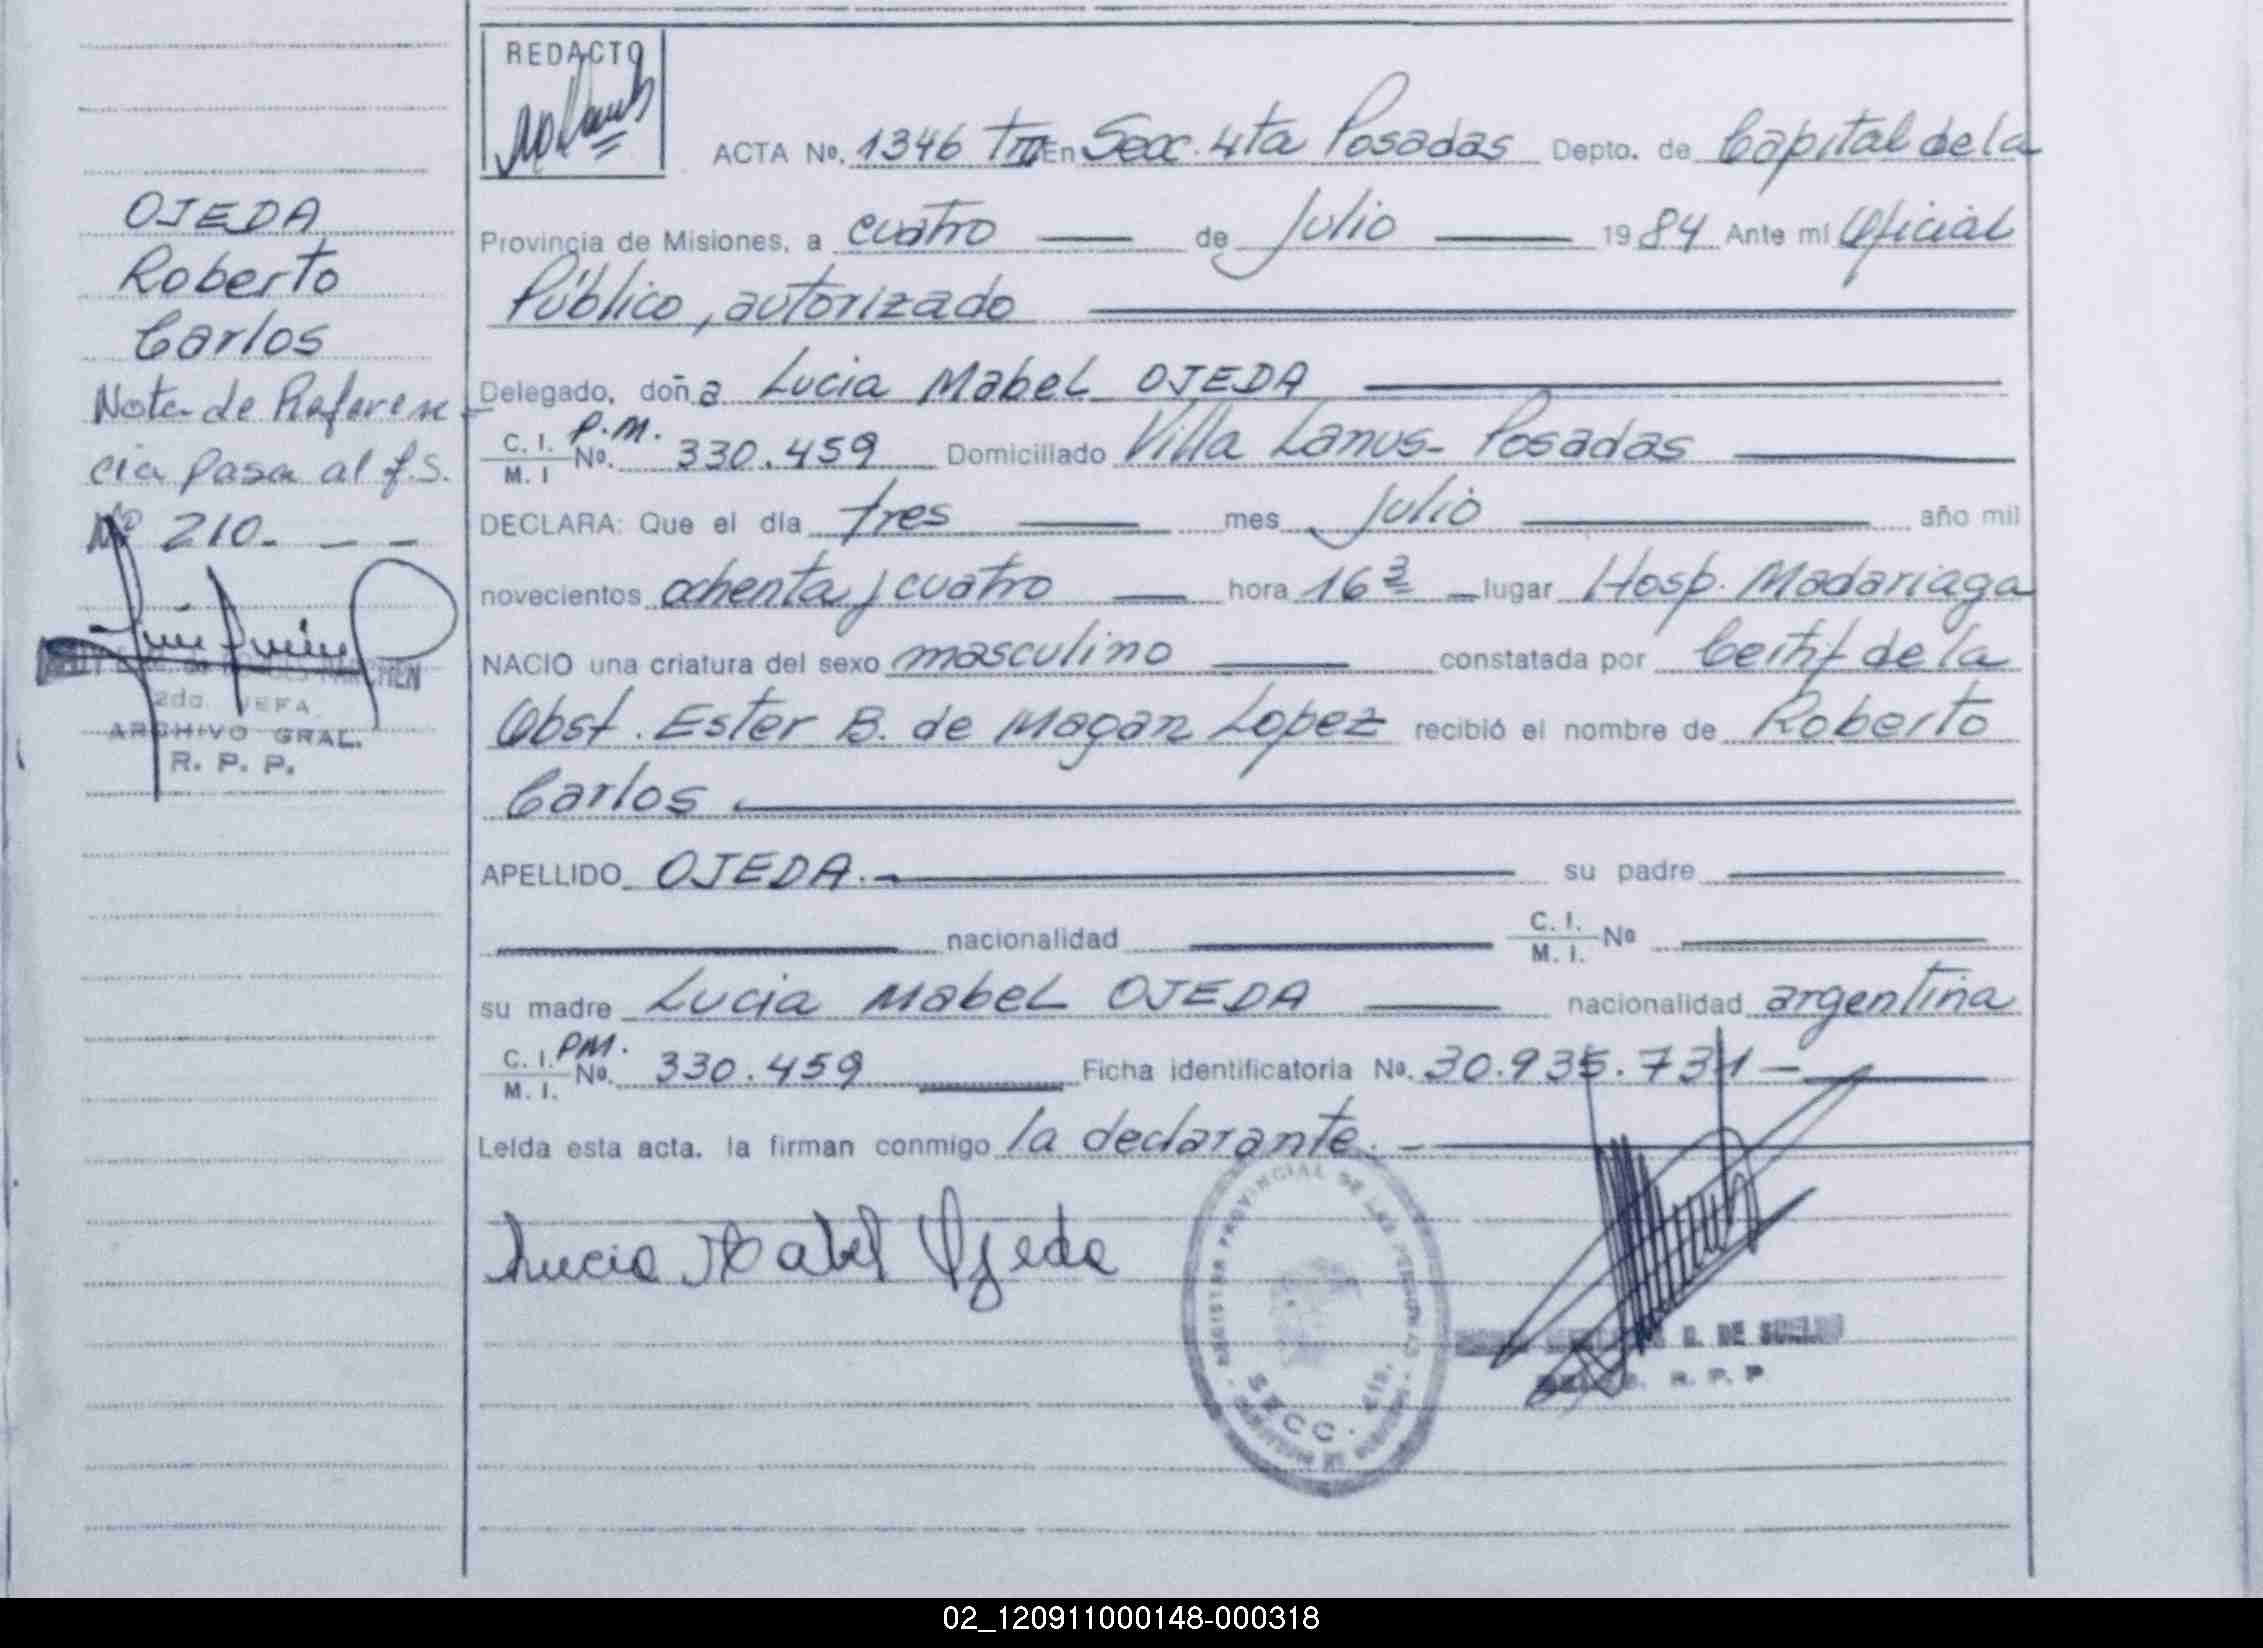 REDACTO
ACTA No. 1346 TIII En Secc. 4ta Posadas Depto. de Capital de la
Provincia de Misiones, a cuatro de Julio 1984 Ante mí Oficial
Público, autorizado
Delegado, doña Lucia Mabel OJEDA
C. I. P.M.
M. I No. 330.459 Domiciliado Villa Lanus - Posadas
DECLARA: Que el día tres mes Julio año mil
novecientos ochenta y cuatro hora 16 3 lugar Hosp. Madariaga
NACIO una criatura del sexo masculino constatada por Certif de la
Obst. Ester B. de Magan Lopez recibió el nombre de Roberto
Carlos
APELLIDO OJEDA. su padre
nacionalidad C. I.
M. I. No
su madre Lucia Mabel OJEDA nacionalidad argentina
C. I. PM.
M. I. No. 330.459 Ficha identificatoria No. 30.935.731
Leída esta acta. la firman conmigo la declarante.
Lucia Mabel Ojeda
REGISTRO PROVINCIAL DE LAS PERSONAS
SECC. 4ta.
D. DE
R. P. P
OJEDA
Roberto
Carlos
Nota de Referen
cia pasa al f.s.
Nº 210.
2da. JEFA
ARCHIVO GRAL.
R. P. P.
02_120911000148-000318